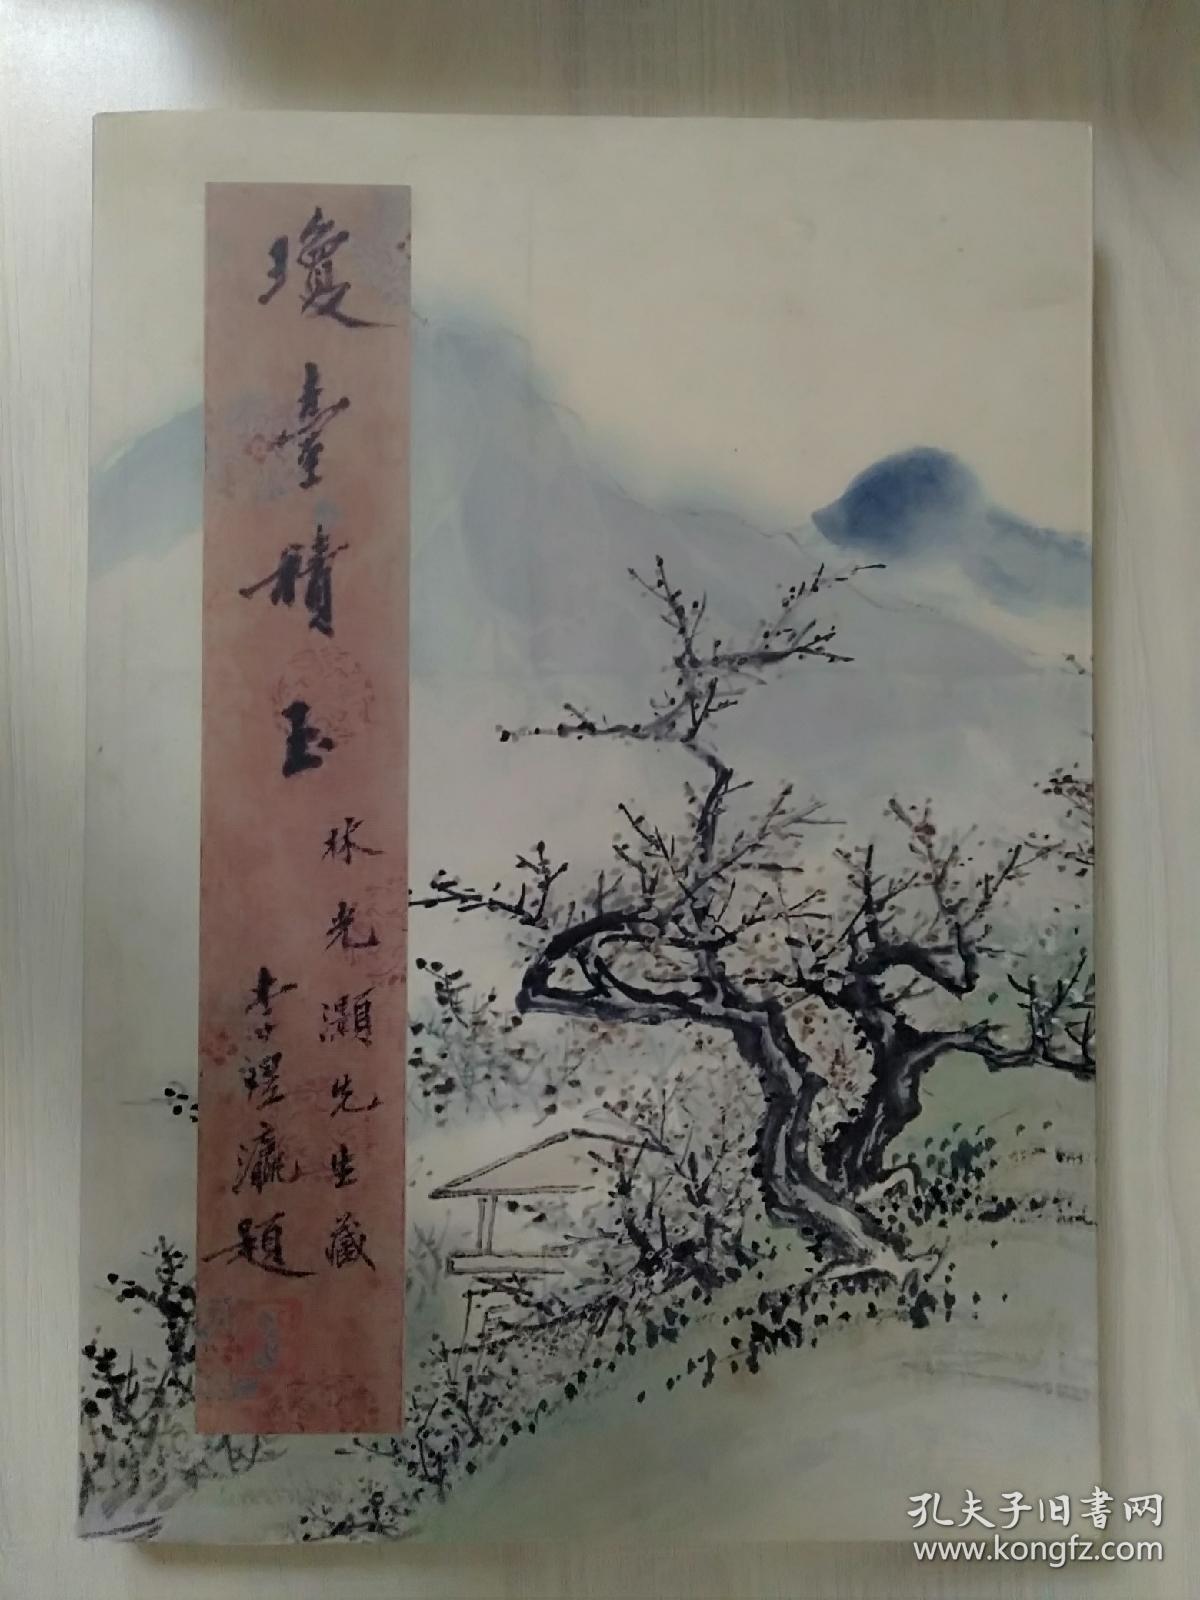 瓊臺積玉
林光灝先生藏
李渥瀛題
孔夫子旧書网
www.kongfz.com